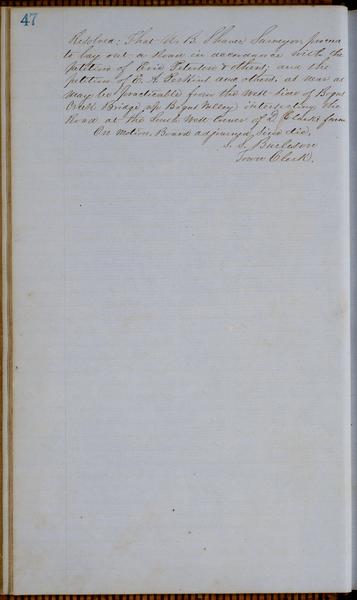 47
Resolved: That W. B. Shaner Surveyor, proceed
to lay out a Road in accordance with the
petition of Reid Peterson & others; and the
petition of A. Perkins and others, as near as
may be practicable from the West side of Bogus
Creek Bridge, up Bogus Valley intersecting the
Road at the South West Corner of D. Clarks farm
On motion, Board adjourned, Sine die,
Burleson
Town Clerk.